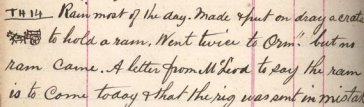 TH 14 Rain most of the day. Made & put on dray a crate
to hold a ram. Went twice to Orm" but no
ram came. A letter from McLeod to say the ram
is to come today & that the rig was sent in mistak